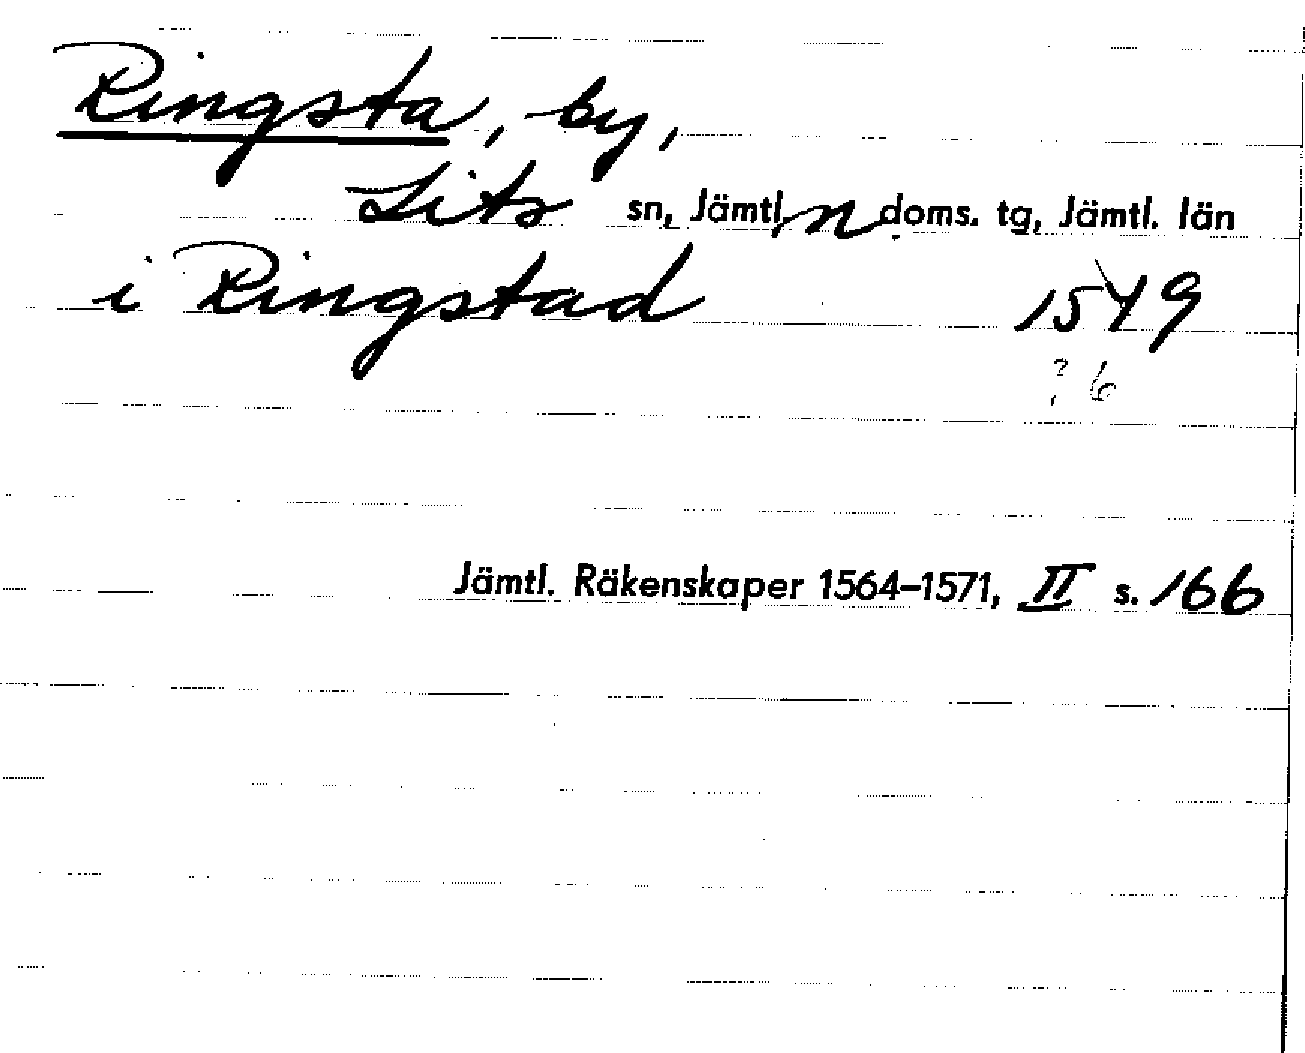 Ringsta, by,
Lits sn, Jämtl. n doms. tg, Jämtl. län
i Ringstad 1549
? 6
Jämtl. Räkenskaper 1564–1571, II s. 166